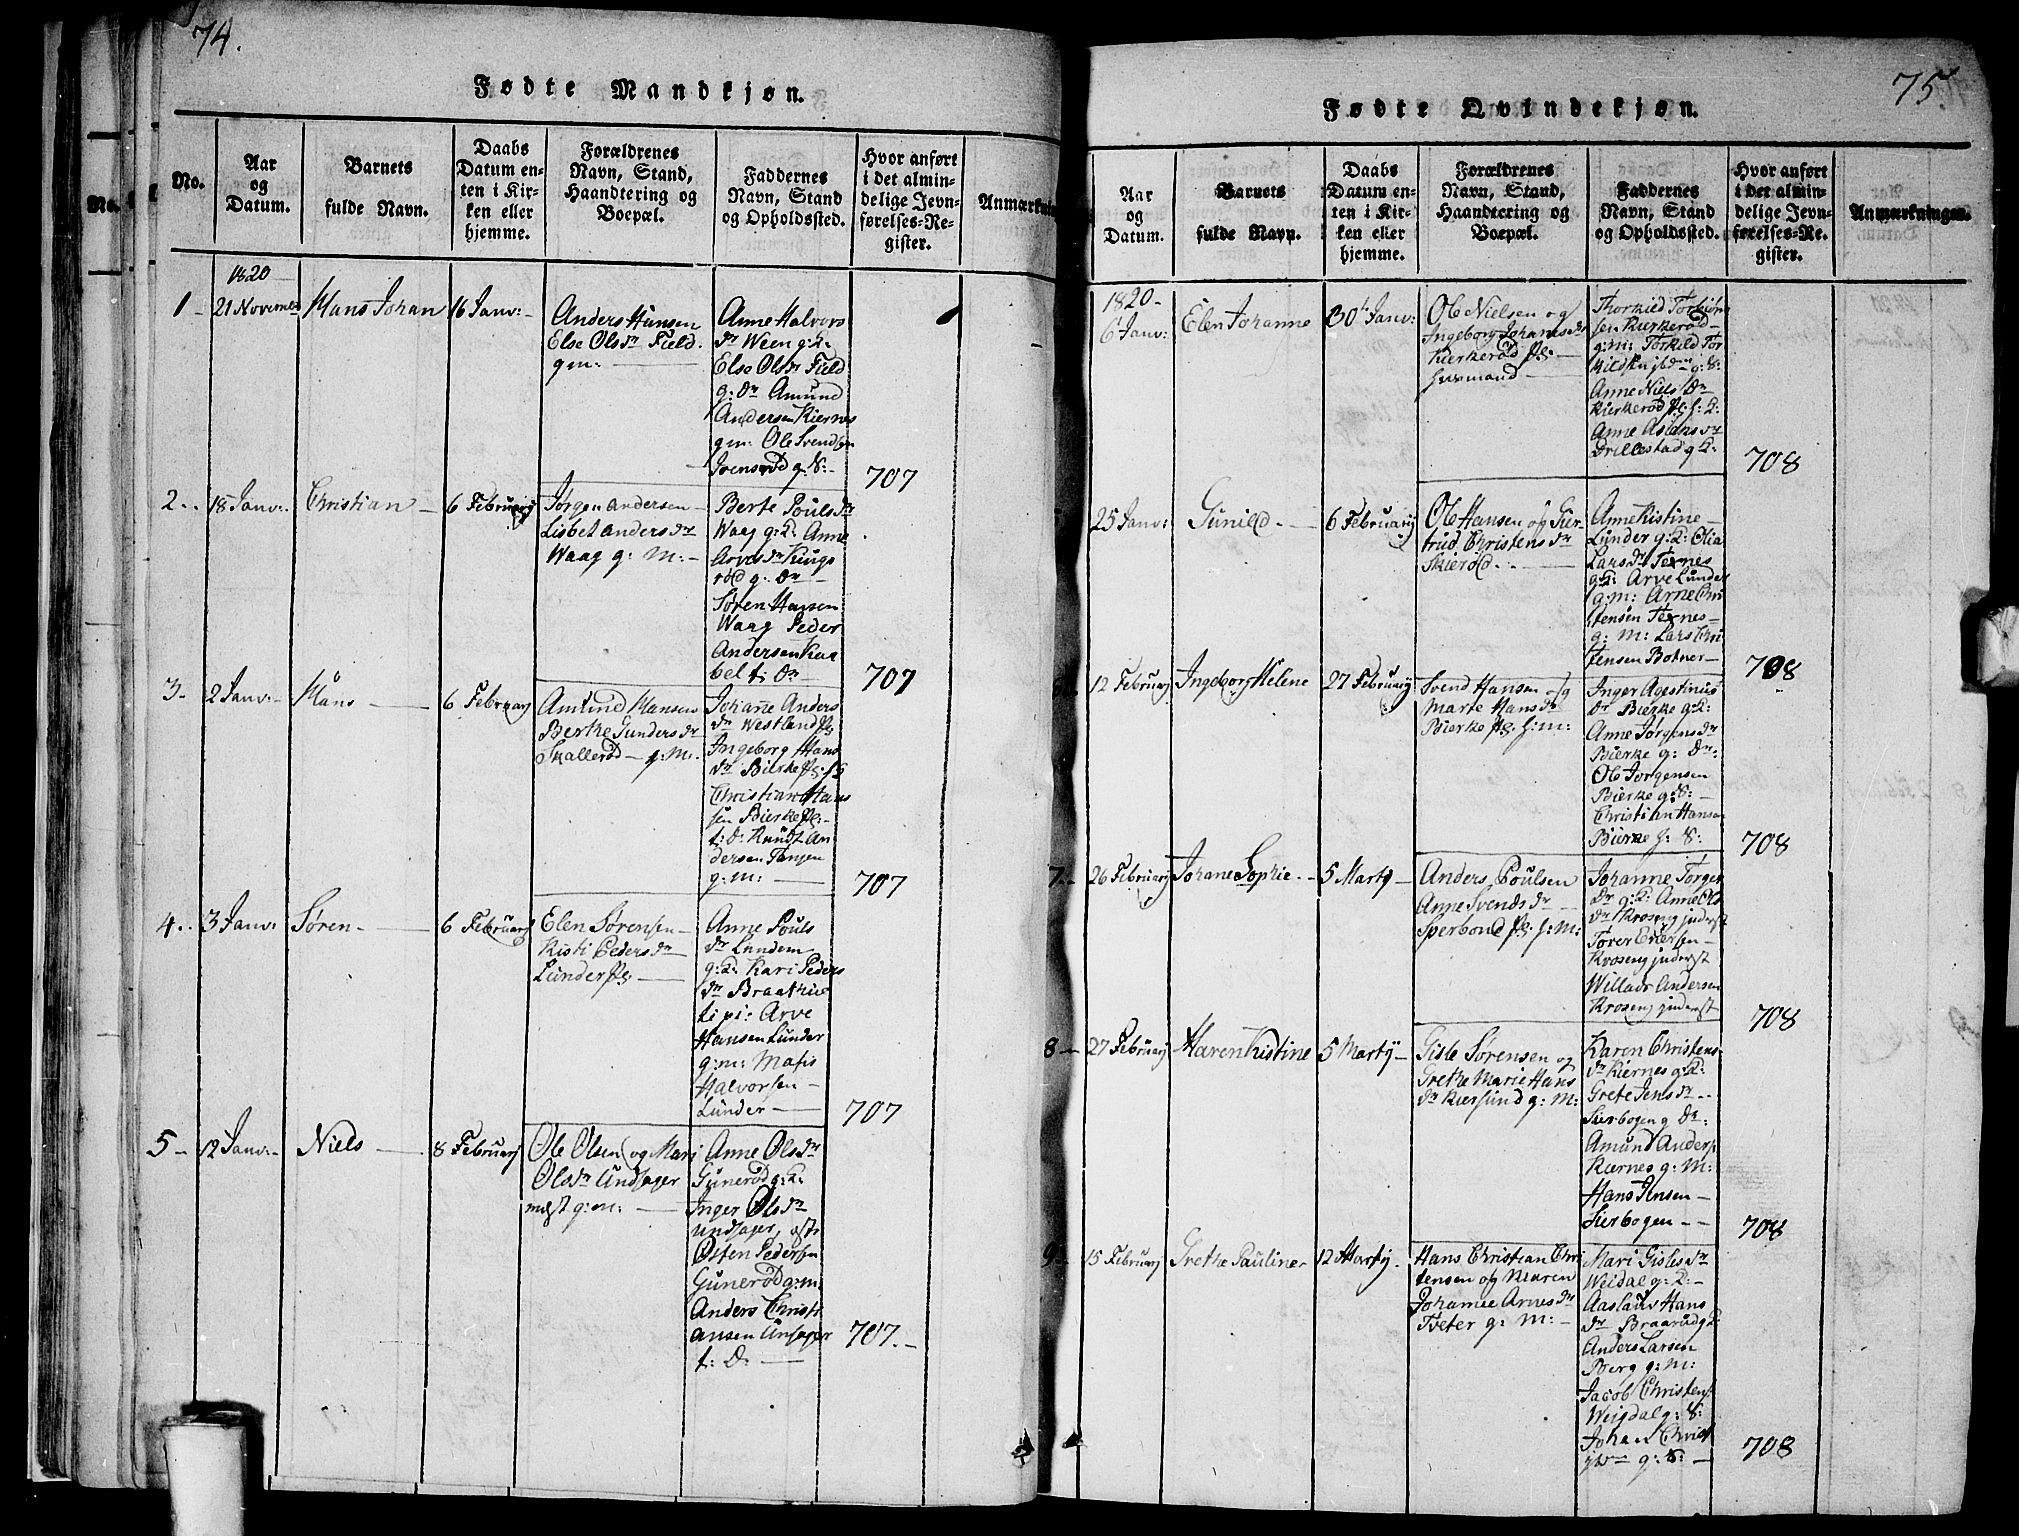 74.
Fødte Mandkjøn.
No.
Aar
og
Datum.
Barnets
fulde Navn.
Daabs
Datum en-
ten i Kir-
ken eller
hjemme.
Forældrenes
Navn, Stand,
Haandtering og
Boepæl.
Faddernes
Navn, Stand
og Opholdssted.
Hvor anført
i det almin-
delige Jevn-
førelses-Re-
gister.
Anmærkning
1
1820
21 Novembr
Hans Johan
16 Janv:
Anders Hansen
Else Olsdr Field
gm:
Anne Halvors
dr Ween g:Q:
Else Olsdr Field
g: Dr Amund
Andersen Kiernes
gm: Ole Svendsen
Ivensrød g. K:
707
2
18 Janv:
Christian
6 February
Jørgen Andersen
Lisbet Anders dr
Waag g: M:
Berte Pouls dr
Waag g: Q: Anne
Arvesdr Kings
rød g. Dr
Søren Hansen
Waag Peder
Andersen Kaa
bel t: Dr
707
3
2 Janv:
Hans
6 February
Amund Hansen
Berthe Gundersdr
Skallerød g.M.
Johane Anders
dr Westland Pl:
Ingeborg Hans
dr Bierke Pl:
Christian Hans
sen Bierke Pl:
t: D: Knudt An
dersen Tangen
g:M:
707
4
3 Janv:
Søren
6 February
Elen Sørensen
Kisti Peders dr
Lunder Pl:
Anne Pouls
dr Lundem
g:Q: Kari Peders
dr Braathe
tipi: Arve
Hansen Lunder
g:m: Matis
Halvorsen
Lunder
707
5
12 Janv:
Niels
8 February
Ole Olsen og Mari
Olsdr Undsager
mest g:m:
Anne Olsdr
Gunerød g:Q:
Inger Olsdr
undsager, øst:
Osten Pedersen
Gunerød g:m
Anders Christi
ansen Unsager
t: D:
707.
75.
Fødte Qvindekjøn.
Aar
og
Datum.
Barnets
fulde Navn.
Daabs
Datum en-
ten i Kir-
ken eller
hjemme.
Forældrenes
Navn, Stand,
Haandtering og
Boepæl.
Faddernes
Navn, Stand
og Opholdssted.
Hvor anført
i det almin-
delige Jevn-
førelses-Re-
gister.
Anmærkninger.
1820
6 Janv:
Elen Johanne
30t Janv:
Ole Nielsen og
Ingeborg Johanesdr
Kierkerød Pl:
huusmand
Thorkild Torbiørn
sen Kierkerød
g:m: Torkild Tor
kildsen ibdm g:K:
Anne Niels Dr
Kierkerød Pl: f: Q:
Anne Aslaks dr
Drillestad g Q:
708
25 Janv:
Gunild
6 February
Ole Hansen og Gier
trud Christens dr
Skierød
Anne Kistine
Lunder g:Q: Olia
Larsdr Ternes
g:Q: Arve Lunder
g:m: Arne Chri
stensen Ternes
g: M: Lars Chri
stensen Botner
708
12 February
Ingeborg Helene
27 February
Svend Hansen og
Marte Hans dr
Bierke Pl: f:m:
Inger Agestinus
Dr Bierke g:Q:
Anne Jørgens dr
Bierke g: Dr:
Ole Jorgensen
Bierke g:K:
Christian Hansen
Bierke f: K:
708
7
26 February
Johane Sophie
5 Marty
Anders Poulsen
Anne Svends dr
Sperbond Pl: f: M:
Johanne Torger
Dr g:Q: Anne Ols
dr Kroseng inderst
Torer Ericsen
Kroseng inderst
Willads Andersen
Kroseng inderst
708
8
27 February
Karen Kistine
5 Marty
Gisle Sørensen og
Grethe Marie Hans
dr Kiersund g: M:
Karen Christens
dr Kiernes g:Q:
Grete Jens dr
Sierbogen g Dr:
Amund Anders
Kiernes g: M:
Hans Jensen
Sierbogen
708
9
15 February
Grethe Pauline
12 Marty
Hans Christian Chri
stensen og Maren
Johanne Arnes dr
Tveter g: M:
Mari Gisles dr
Weidal g: Q:
Aaslaug Hans
dr Braarød g Q
Anders Larsen
Berg g:M:
Jacob Christens
Weigdal g: K:
Johan Christ
g: K:
708